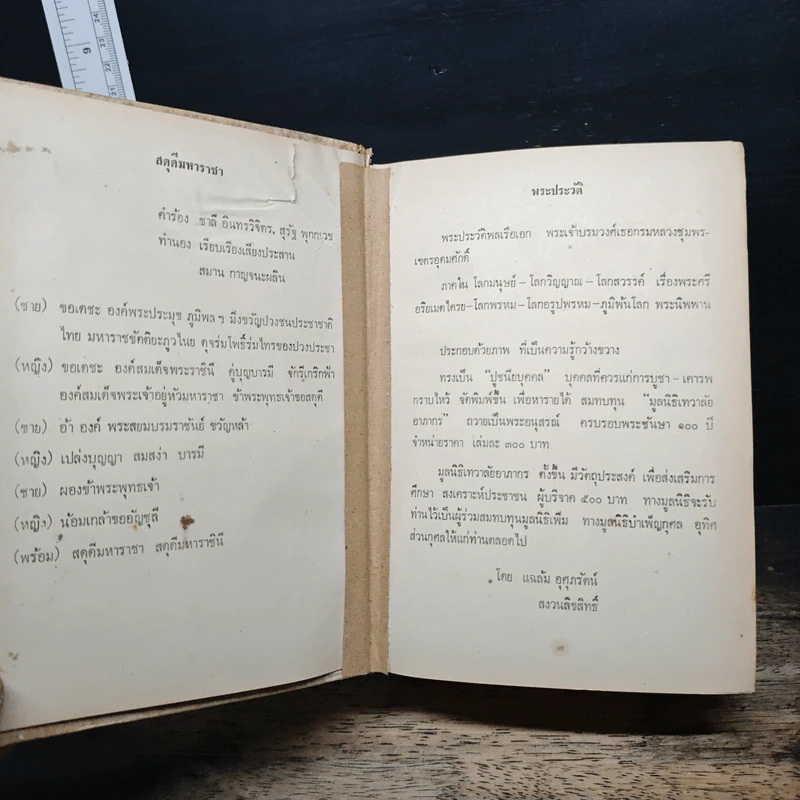 9
24
23
22
21
สดุดีมหาราชา
คำร้อง ชาลี อินทรวิจิตร, สุรัฐ พุกกะเวช
ทำนอง เรียบเรียงเสียงประสาน
สมาน กาญจนะผลิน
(ชาย) ขอเดชะ องค์พระประมุข ภูมิพลฯ มิ่งขวัญปวงชนประชาชาติ
ไทย มหาราชขัตติยะภูวไนย ดุจร่มโพธิ์ร่มไทรของปวงประชา
(หญิง) ขอเดชะ องค์สมเด็จพระราชินี คู่บุญบารมี จักรีเกริกฟ้า
องค์สมเด็จพระเจ้าอยู่หัวมหาราชา ข้าพระพุทธเจ้าขอสดุดี
(ชาย) อ้า องค์ พระสยามบรมราชันย์ ขวัญหล้า
(หญิง) เปล่งบุญญา สมสง่า บารมี
(ชาย) ผองข้าพระพุทธเจ้า
(หญิง) น้อมเกล้าขออัญชุลี
(พร้อม) สดุดีมหาราชา สดุดีมหาราชินี
พระประวัติ
พระประวัติพลเรือเอก พระเจ้าบรมวงศ์เธอกรมหลวงชุมพร-
เขตรอุดมศักดิ์
ภาคใน โลกมนุษย์ – โลกวิญญาณ – โลกสวรรค์ เรื่องพระศรี
อริยเมตไตรย–โลกพรหม–โลกอรูปพรหม–ภูมิพ้นโลก พระนิพพาน
ประกอบด้วยภาพ ที่เป็นความรู้กว้างขวาง
ทรงเป็น "ปูชนียบุคคล" บุคคลที่ควรแก่การบูชา–เคารพ
กราบไหว้ จัดพิมพ์ขึ้น เพื่อหารายได้ สมทบทุน "มูลนิธิเทวาลัย
อาภากร" ถวายเป็นพระอนุสรณ์ ครบรอบพระชันษา ๑๐๐ ปี
จำหน่ายราคา เล่มละ ๓๐๐ บาท
มูลนิธิเทวาลัยอาภากร ตั้งขึ้น มีวัตถุประสงค์ เพื่อส่งเสริมการ
ศึกษา สงเคราะห์ประชาชน ผู้บริจาค ๕๐๐ บาท ทางมูลนิธิจะรับ
ท่านไว้เป็นผู้ร่วมสมทบทุนมูลนิธิเพิ่ม ทางมูลนิธิบำเพ็ญกุศล อุทิศ
ส่วนกุศลให้แก่ท่านตลอดไป
โดย แฉล้ม อุศุภรัตน์
สงวนลิขสิทธิ์